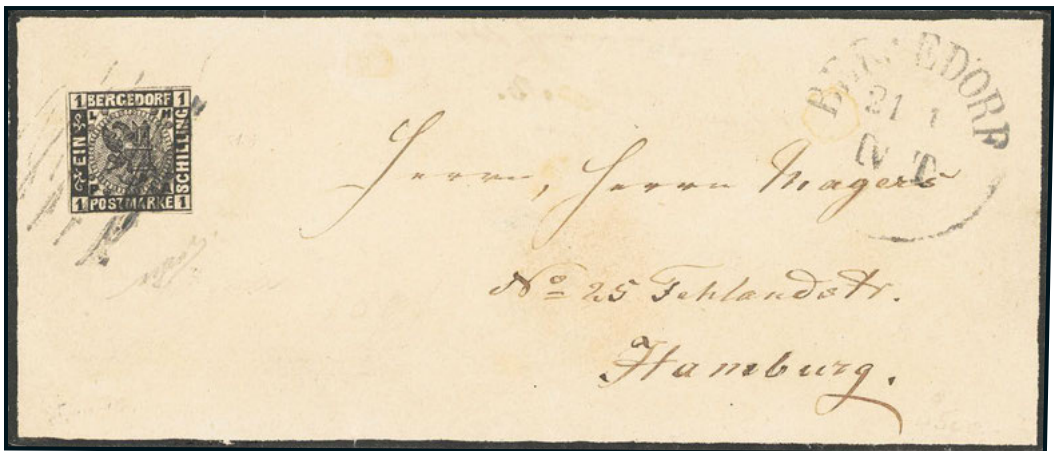 1 BERGEDORF 1
EIN
SCHILLING
1 POSTMARKE 1
BERGEDORF
21 1
N T
Herrn, Herrn Magers
No 25 Fehlandstr.
Hamburg.